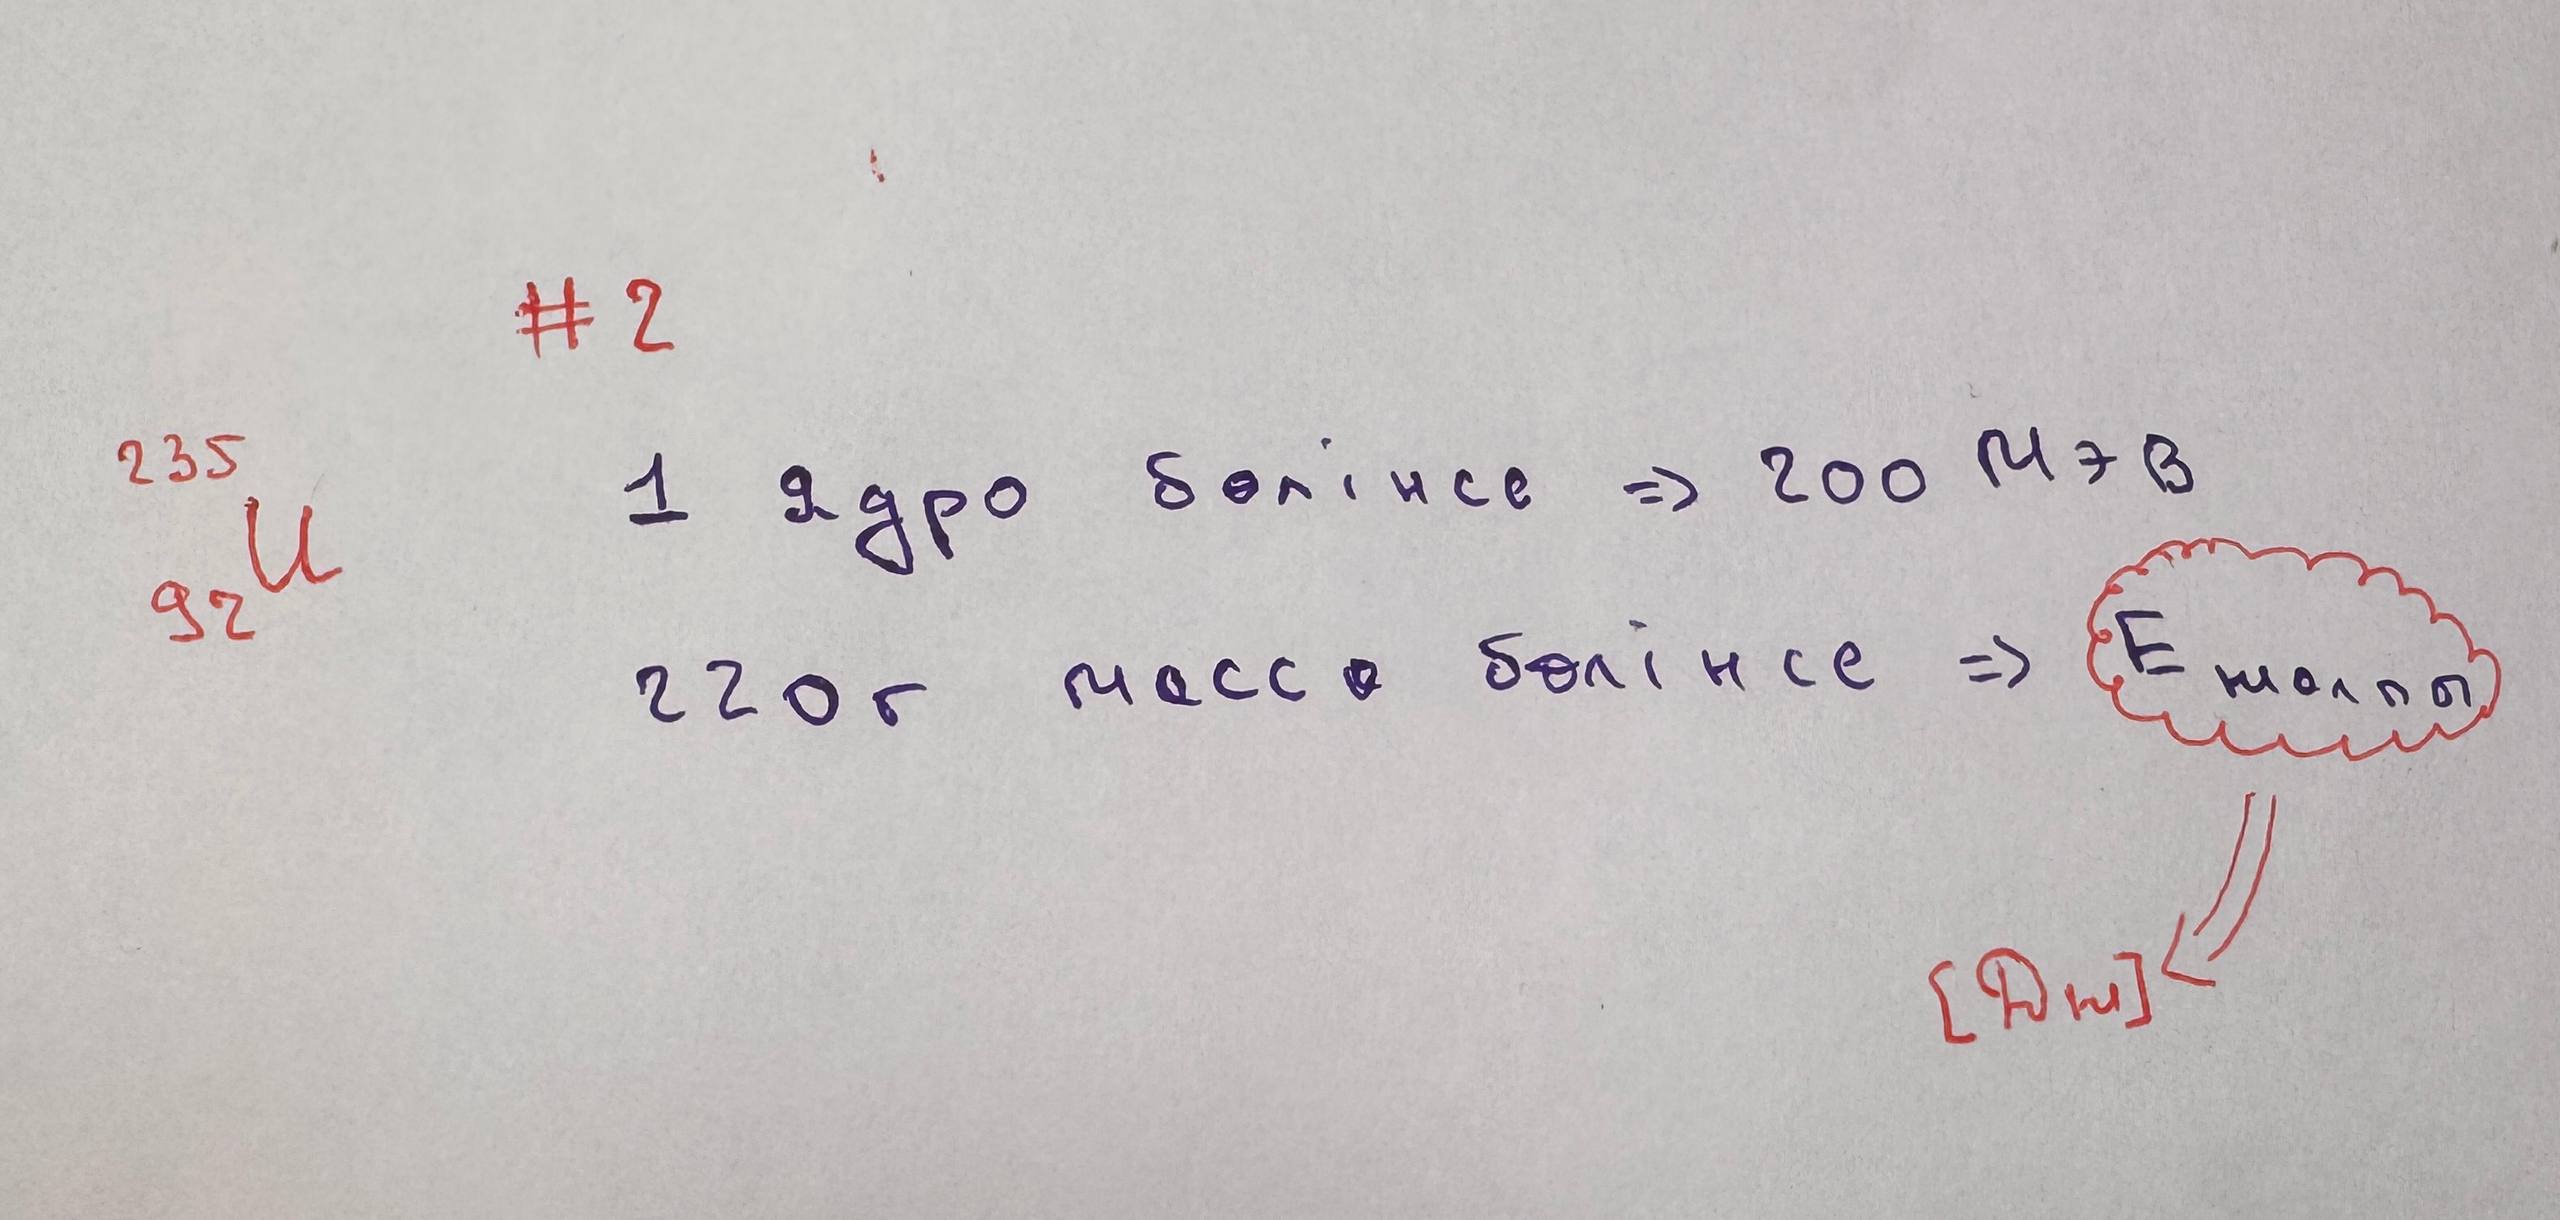 #2
235
92 U
1 ядро бөлінсе => 200 МэВ
220г масса бөлінсе => E жалпы
[Дж]